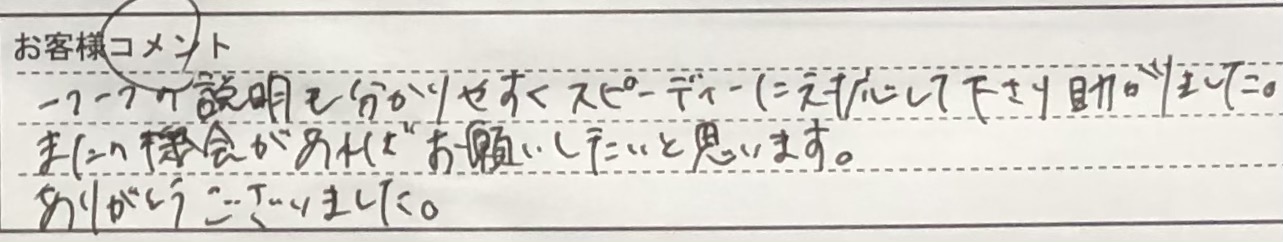 お客様コメント
一つ一つの説明も分かりやすくスピーディーに対応して下さり助かりました。
またの機会があればお願いしたいと思います。
ありがとうございました。